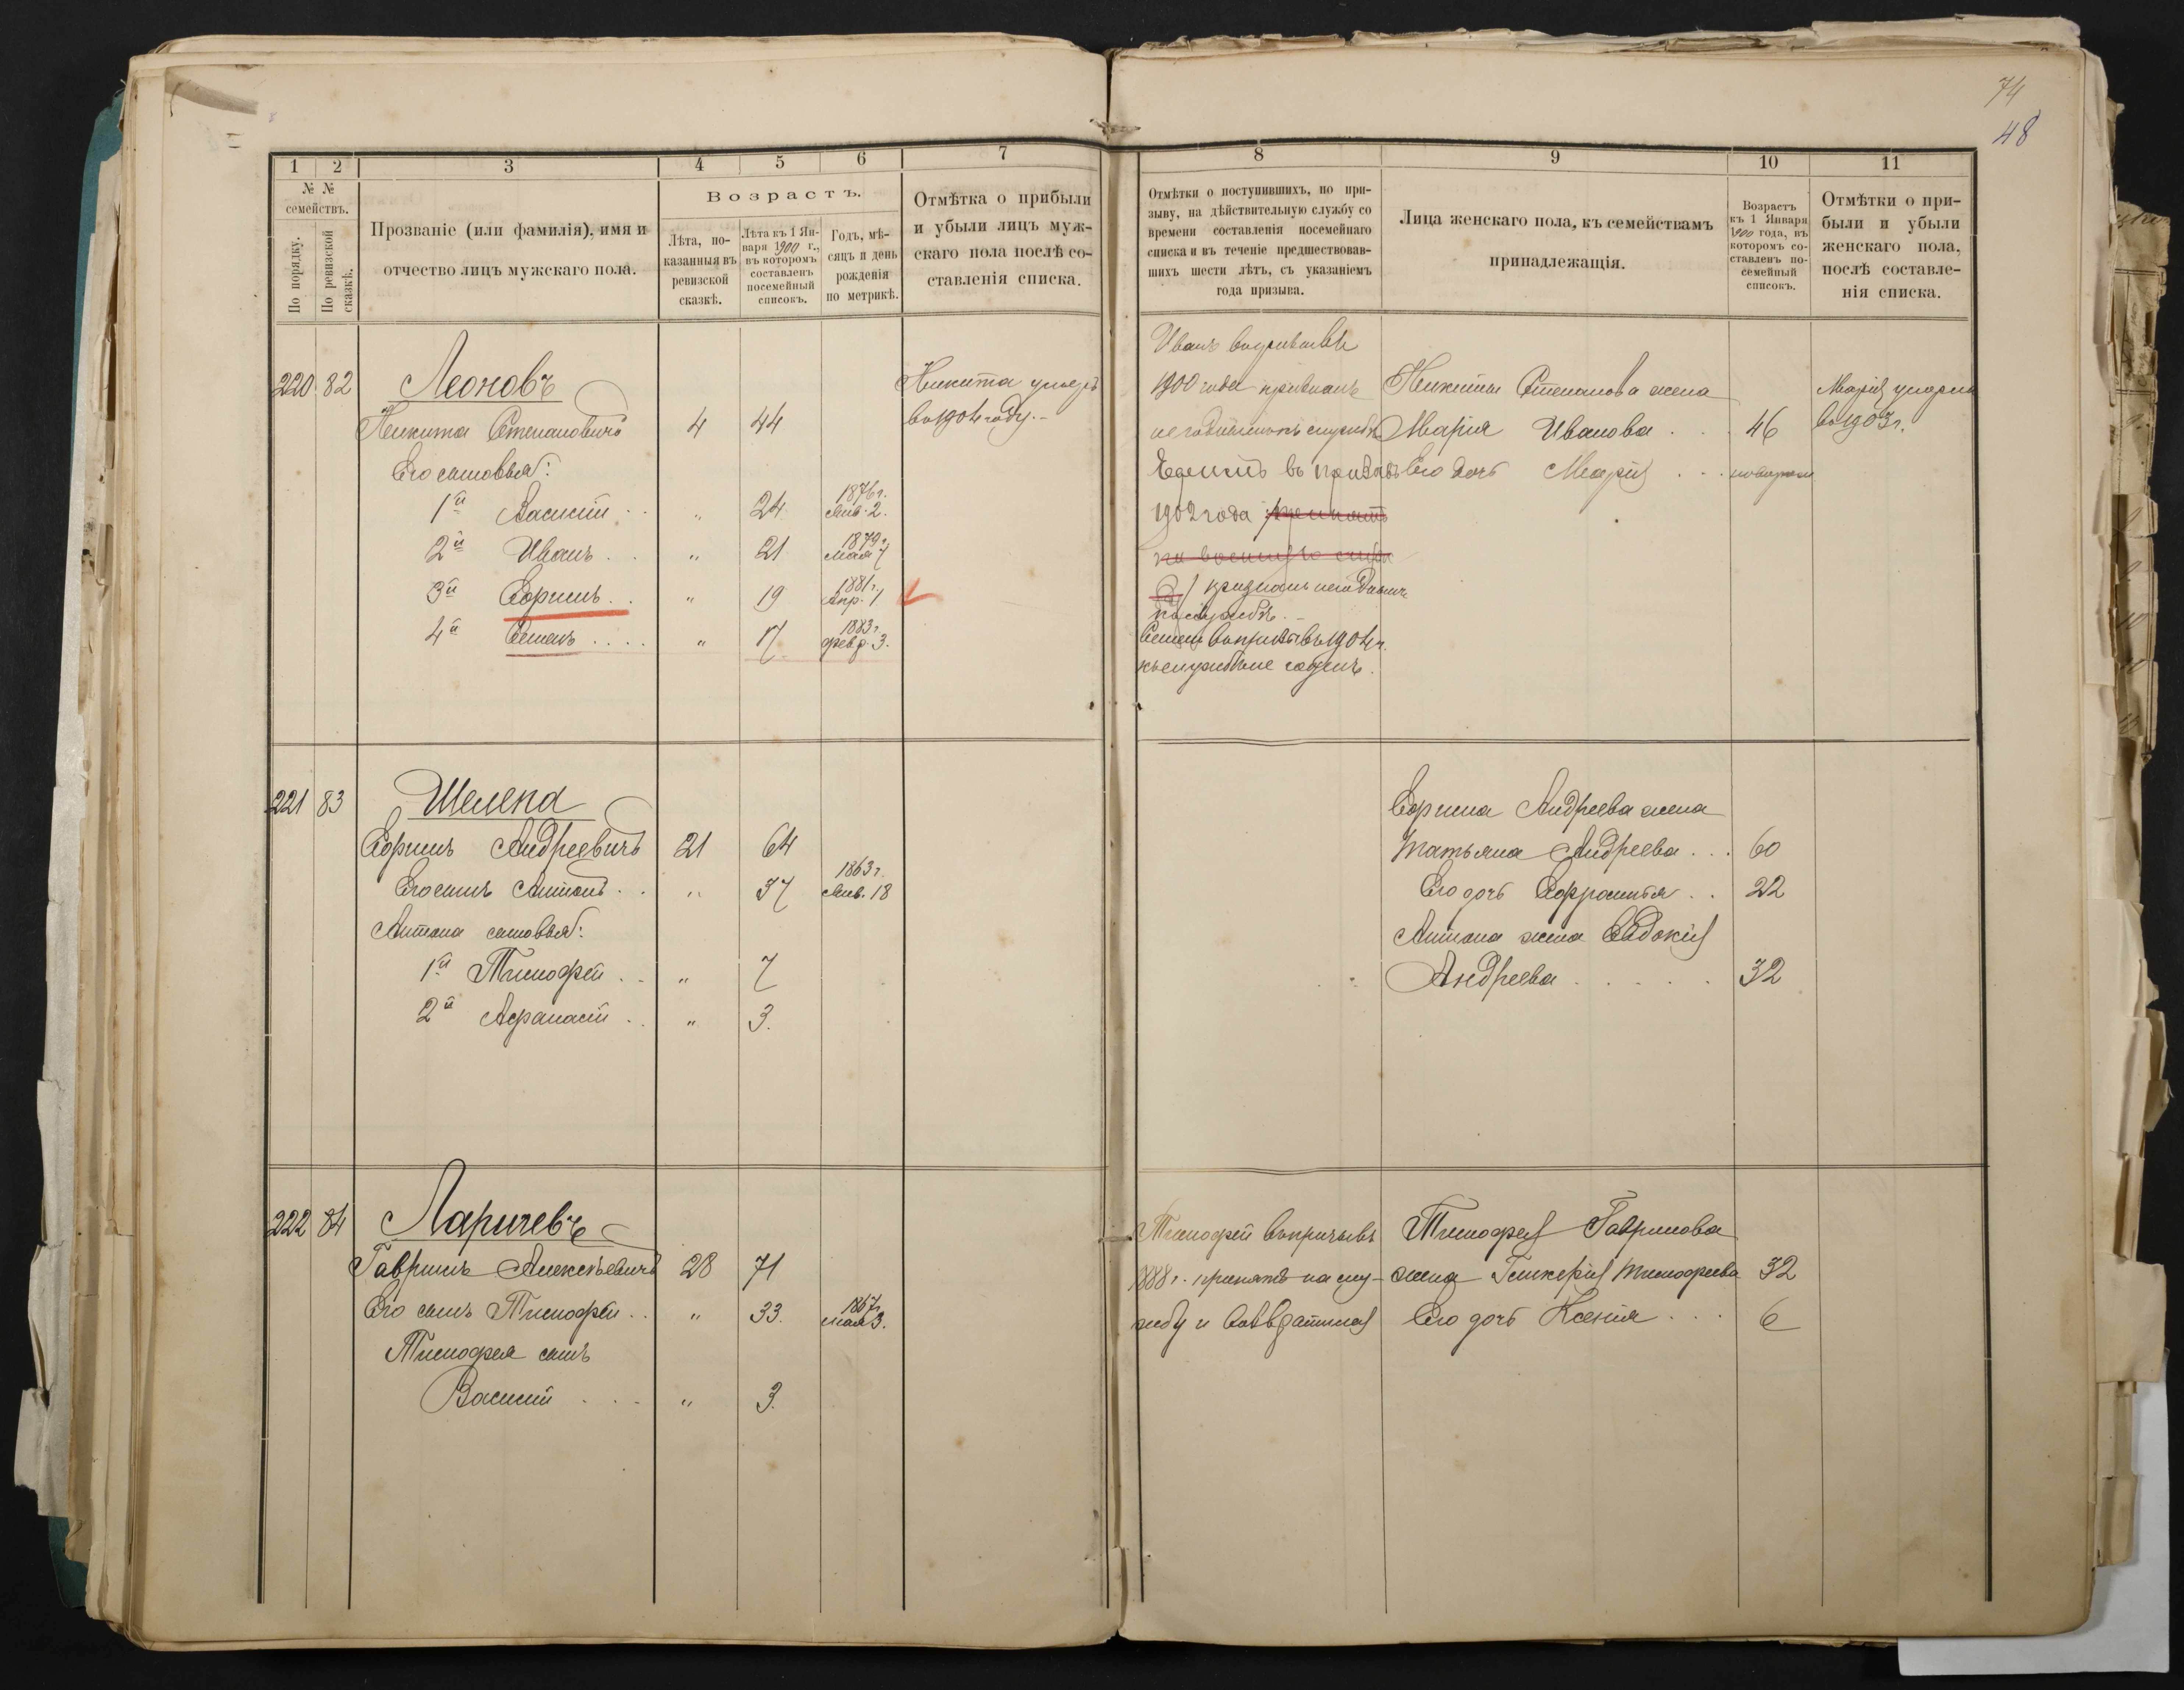 74
48
1 2 3 4 5 6 7
№ №
семействъ.
По порядку.
По ревизской
сказкѣ.
Прозваніе (или фамилія), имя и
отчество лицъ мужскаго пола.
Возрастъ.
Лѣта, по-
казанныя въ
ревизской
сказкѣ.
Лѣта къ 1 Ян-
варя 1900 г.,
въ которомъ
составленъ
посемейный
списокъ.
Годъ, мѣ-
сяцъ и день
рожденія
по метрикѣ.
Отмѣтка о прибыли
и убыли лицъ муж-
скаго пола послѣ со-
ставленія списка.
220 82 Леоновъ
Никита Степановичъ 4 44
Его сыновья:
1й Василій . . „ 24 1876 г. Янв. 2.
2й Иванъ . . „ 21 1879 г. мая 7
3й Ефимъ . . „ 19 1881 г. Апр. 1
4й Семенъ . . . . „ 17 1883 г. февр. 3.
Никита умеръ
въ 1904 году. –
221 83 Шелепа
Ефимъ Андреевичъ 21 64
Его сынъ Антонъ . . „ 37 1863 г. Янв. 18
Антона сыновья:
1й Тимофей . . „ 7
2й Афанасій . . „ 3.
222 84 Ларичевъ
Гаврилъ Алексѣевичъ 28 71
Его сынъ Тимофей . . „ 33. 1867 г. мая 3.
Тимофея сынъ
Василій . . . „ 3.
8 9 10 11
Отмѣтки о поступившихъ, по при-
зыву, на дѣйствительную службу со
времени составленія посемейнаго
списка и въ теченіе предшествовав-
шихъ шести лѣтъ, съ указаніемъ
года призыва.
Лица женскаго пола, къ семействамъ
принадлежащія.
Возрастъ
къ 1 Января
1900 года, въ
которомъ со-
ставленъ по-
семейный
списокъ.
Отмѣтки о при-
были и убыли
женскаго пола,
послѣ составле-
нія списка.
Иванъ
1900 года признанъ
негоднымъ къ службѣ
Ефимъ въ призывъ
1902 года
признанъ
Семенъ въ призывъ 1904 г.
къ службѣ не годенъ.
Никиты Степанова жена
Марія Иванова . . . 46
Его дочь Марія . . .
Марія умерла
въ 1903 г.
Ефима Андреева жена
Татьяна Андреева . . . 60
Его дочь Ефросинья . . 22
Антона жена Евдокія
Андреева . . . . . 32
Тимофей въ призывъ
1888 г. принятъ на слу-
жбу и
Тимофея Гаврилова
жена Гликерія Тимофеева 32
Его дочь Ксенія . . . 6